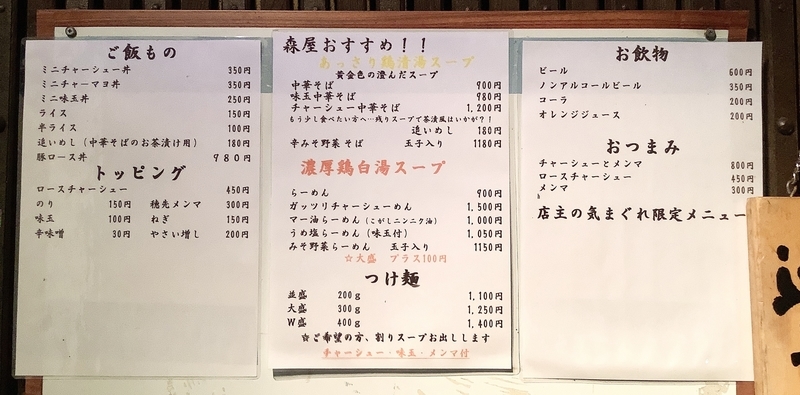 ご飯もの
ミニチャーシュー丼 350円
ミニチャーマヨ丼 350円
ミニ味玉丼 250円
ライス 150円
半ライス 100円
追いめし（中華そばのお茶漬け用） 180円
豚ロース丼 980円
トッピング
ロースチャーシュー 450円
のり 150円 穂先メンマ 300円
味玉 100円 ねぎ 150円
辛味噌 30円 やさい増し 200円
森屋おすすめ！！
あっさり鶏清湯スープ
黄金色の澄んだスープ
中華そば 900円
味玉中華そば 980円
チャーシュー中華そば 1,200円
もう少し食べたい方へ…残りスープで茶漬風はいかが？！
追いめし 180円
辛みそ野菜そば 玉子入り 1180円
濃厚鶏白湯スープ
らーめん 900円
ガッツリチャーシューめん 1,500円
マー油らーめん（こがしニンニク油） 1,000円
うめ塩らーめん（味玉付） 1,050円
みそ野菜らーめん 玉子入り 1150円
☆大盛 プラス100円
つけ麺
並盛 200g 1,100円
大盛 300g 1,250円
W盛 400g 1,400円
☆ご希望の方、割りスープお出しします
チャーシュー・味玉・メンマ付
お飲物
ビール 600円
ノンアルコールビール 350円
コーラ 200円
オレンジジュース 200円
おつまみ
チャーシューとメンマ 800円
ロースチャーシュー 450円
メンマ 300円
店主の気まぐれ限定メニュー